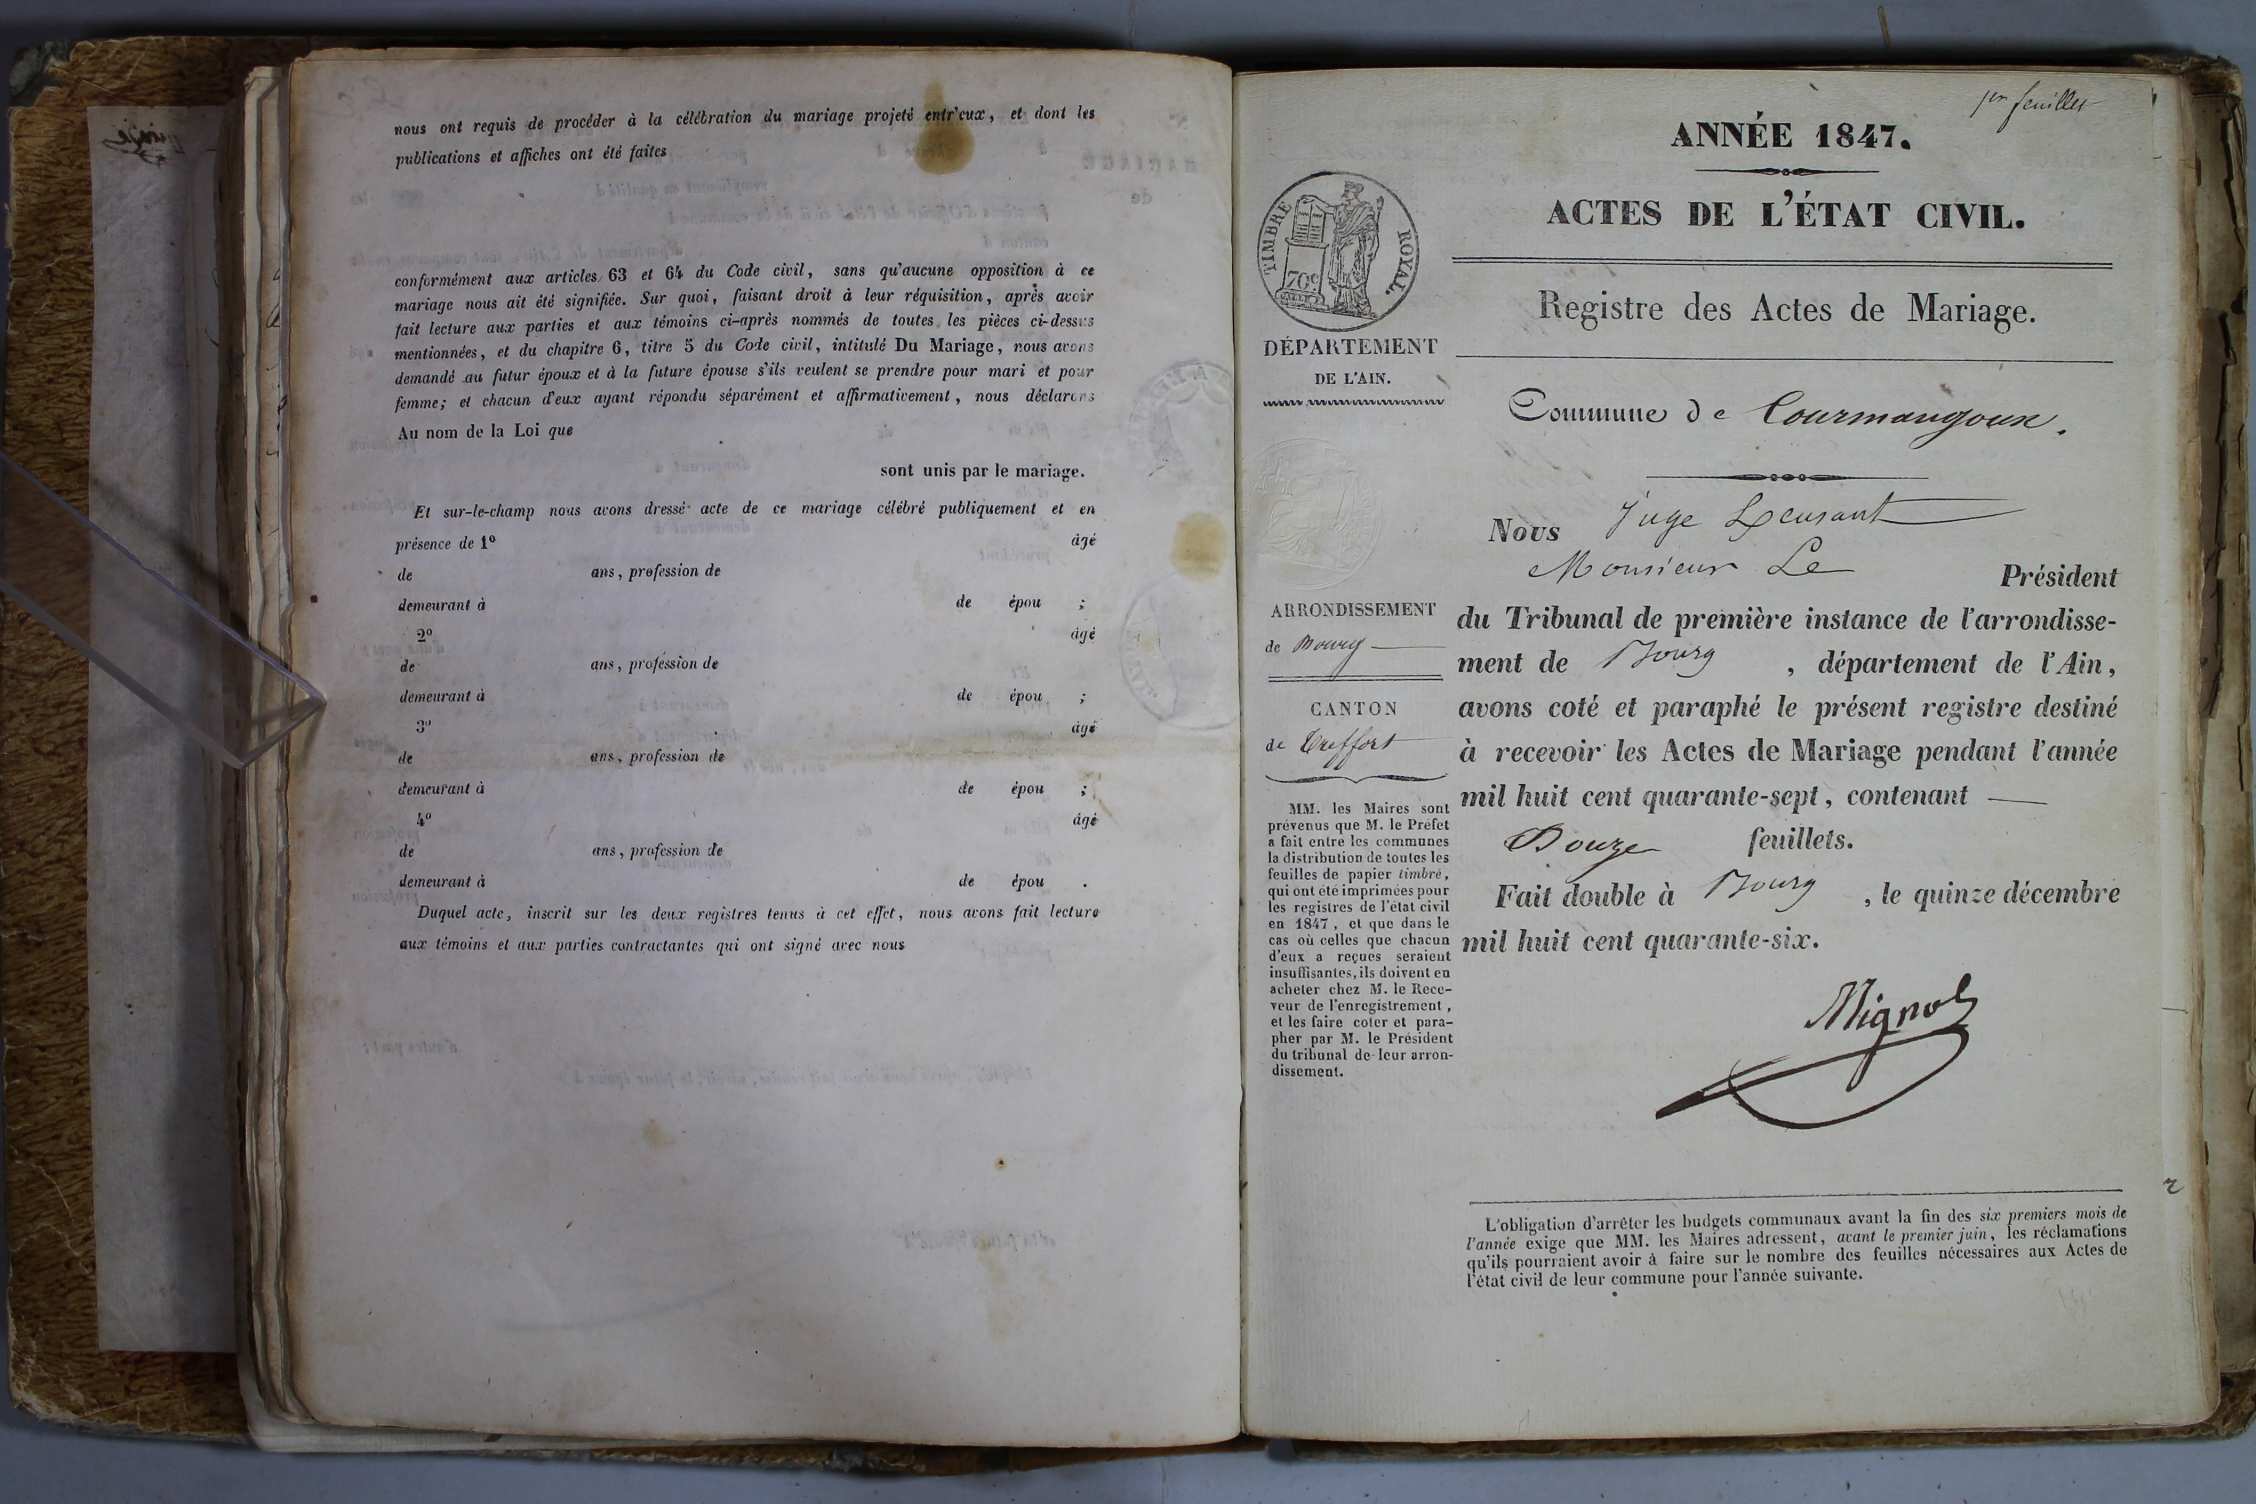 nous ont requis de procéder à la célébration du mariage projeté entr'eux, et dont les
publications et affiches ont été faites
conformément aux articles 63 et 64 du Code civil, sans qu'aucune opposition à ce
mariage nous ait été signifiée. Sur quoi, faisant droit à leur réquisition, après avoir
fait lecture aux parties et aux témoins ci-après nommés de toutes les pièces ci-dessus
mentionnées, et du chapitre 6, titre 5 du Code civil, intitulé Du Mariage, nous avons
demandé au futur époux et à la future épouse s'ils veulent se prendre pour mari et pour
femme; et chacun d'eux ayant répondu séparément et affirmativement, nous déclarons
Au nom de la Loi que
sont unis par le mariage.
Et sur-le-champ nous avons dressé acte de ce mariage célébré publiquement et en
présence de 1º âgé
de ans, profession de
demeurant à de épou ;
2º âgé
de ans, profession de
demeurant à de épou ;
3º âgé
de ans, profession de
demeurant à de épou ;
4º âgé
de ans, profession de
demeurant à de épou .
Duquel acte, inscrit sur les deux registres tenus à cet effet, nous avons fait lecture
aux témoins et aux parties contractantes qui ont signé avec nous
1er feuillet
ANNÉE 1847.
ACTES DE L'ÉTAT CIVIL.
Registre des Actes de Mariage.
TIMBRE ROYAL.
70c
DÉPARTEMENT
DE L'AIN.
ARRONDISSEMENT
de Bourg
CANTON
de Treffort
MM. les Maires sont
prévenus que M. le Préfet
a fait entre les communes
la distribution de toutes les
feuilles de papier timbré,
qui ont été imprimées pour
les registres de l'état civil
en 1847, et que dans le
cas où celles que chacun
d'eux a reçues seraient
insuffisantes, ils doivent en
acheter chez M. le Rece-
veur de l'enregistrement,
et les faire coter et para-
pher par M. le Président
du tribunal de leur arron-
dissement.
Commune de Courmangoux.
Nous Juge
Monsieur Le Président
du Tribunal de première instance de l'arrondisse-
ment de Bourg, département de l'Ain,
avons coté et paraphé le présent registre destiné
à recevoir les Actes de Mariage pendant l'année
mil huit cent quarante-sept, contenant
Douze feuillets.
Fait double à Bourg, le quinze décembre
mil huit cent quarante-six.
Mignot
L'obligation d'arrêter les budgets communaux avant la fin des six premiers mois de
l'année exige que MM. les Maires adressent, avant le premier juin, les réclamations
qu'ils pourraient avoir à faire sur le nombre des feuilles nécessaires aux Actes de
l'état civil de leur commune pour l'année suivante.